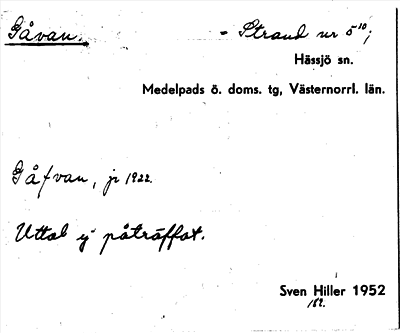 Gåvan. - Strand nr 5¹⁰;
Hässjö sn.
Medelpads ö. doms. tg, Västernorrl. län.
Gåfvan, jr 1922.
Uttal ej påträffat.
Sven Hiller 1952
182.